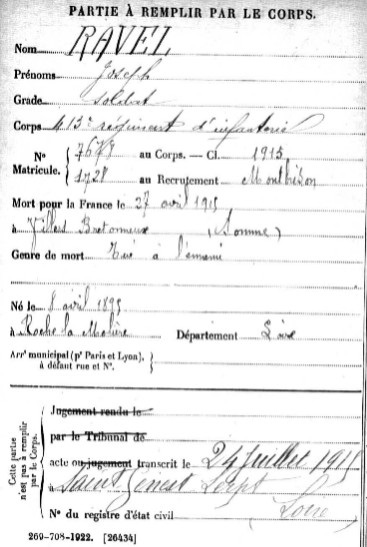 PARTIE À REMPLIR PAR LE CORPS.
Nom RAVEL
Prénoms Joseph
Grade soldat
Corps 413e régiment d'infanterie
N° Matricule. { 7678 au Corps. — Cl. 1915
1728 au Recrutement Montbrison
Mort pour la France le 27 avril
à Villers Bretonneux (Somme)
Genre de mort Tué à l'ennemi
Né le 8 avril 1895
à Roche la Molière Département Loire
Arrt municipal (pr Paris et Lyon), à défaut rue et N°. }
Cette partie n'est pas à remplir par le Corps.
Jugement rendu le
par le Tribunal de
acte ou jugement transcrit le 24 Juillet
à Saint Genest Lerpt
N° du registre d'état civil (Loire)
269-708-1922. [26434]